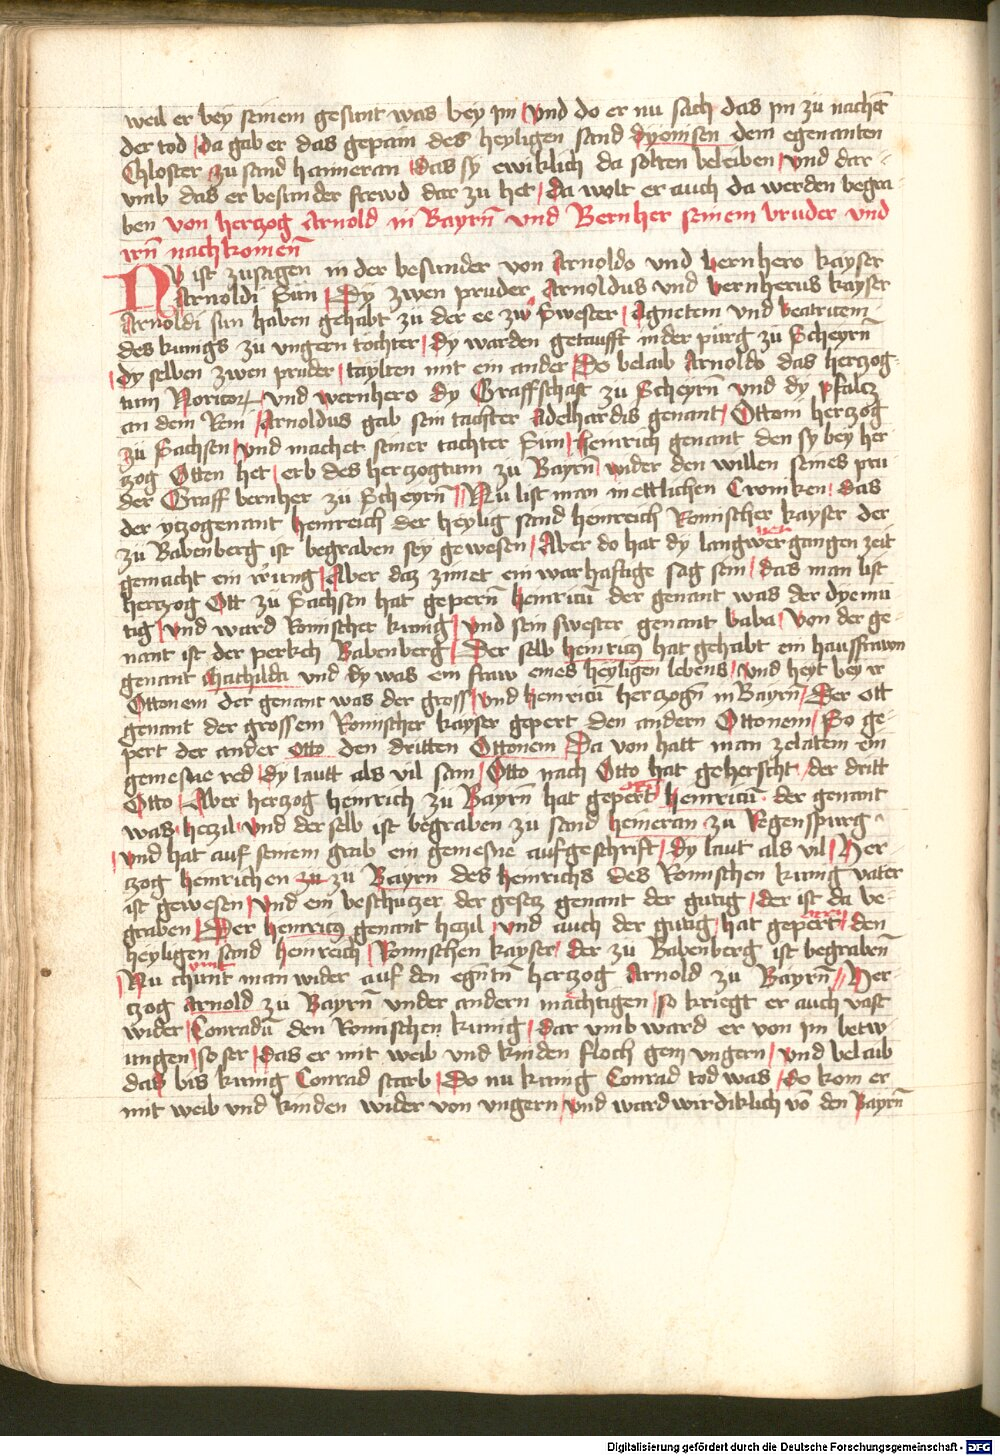 weil er bey seinem gesunt was bey im / und do er nu sach das im zu nachet
der tod / da gab er das gepain des heyligen sand dyonisen dem egenanten
Chloster zu sand haimeran / das sy ewiklich da solten beleiben / und dar-
umb das er besunder frewd dar zu het / da wolt er auch da werden begra-
ben von hertzog Arnold in Bayrn̄ und Bernher seinem bruder und
irn̄ nachkomen̄
Nv ist zusagen in der besunder von Arnoldo und bernhero kayser
Arnoldi Sun / Dy zwen pruder Arnoldus und bernherus kayser
Arnoldi sun haben gehabt zu der ee zwo Swester / Agnetem und beatricem
des kunigs zu ungern tochter / dy warden getaufft in der purg zu Scheyrn̄
/ dy selben zwen pruder / taylten mit ein ander / Do belaib Arnoldo das hertzog-
tum Noricor / und wernhero dy Graffschaft zu Scheyrn̄ und dy pfalcz
an dem Rein / Arnoldus gab sein tachter Adelhardis genant / Ottoni hertzog
zu Sachsen / und machet seiner tachter Sun / heinrich genant den sy bey her
tzog Otten het / erb des hertzogtum zu Bayrn̄ / wider den willen seines pru
der Graff bernher zu Scheyrn̄ // Nu list man in ettlichen Croniken / das
der ytzogenant heinreich der heylig sand heinreich Romischer kayser der
zu Babenberg ist begraben sey gewesen / Aber do hat dy langwer gangen zeit
gemacht ein irrung / Aber daz zimet ein warhaftige sag sein / das man list
hertzog Ott zu Sachsen hat gepern̄ heinricū der genant was der dyemu
tig / und ward Romischer kunig / und sein swester genant baba / von der ge-
nant ist der perkch Babenberg / Der selb heinricus hat gehabt ein hausfrawn
genant Mathilda und dy was ein fraw eines heyligen lebens / und heyt bey ir
Ottonem der genant was der gross / und heinricū hertzogn̄ in Bayrn̄ / Der ott
genant der gross ein Romischer kayser gepert den andern Ottonem / So ge-
pert der ander otto den dritten Ottonem Da von hatt man zelatein ein
gemesne red / dy lautt als vil sam / Otto nach Otto hat geherscht / der dritt
Otto / Aber hertzog heinrich zu Bayrn̄ hat gepert heinricū der genant
was hezil / und der selb ist begraben zu sand hemeran zu Regenspurg
/ und hat auf seinem grab ein gemesne aufgeschrift / dy laut als vil / Her-
tzog heinrichen zu zu Bayrn des heinrichs des Romischen kunig vater
ist gewesen / und ein beschutzer der gesetz genant der gutig / der ist da be-
graben / Der heinricus genant hezil / und auch der gutig / hat gepert / den
heyligen sand heinreich / Romischen kayser / der zu Babenberg ist begraben̄
/ Nu chumt man wider auf den egn̄tn̄ hertzog Arnold zu Bayrn̄ // Her-
tzog Arnold zu Bayrn̄ under andern māchtigen / so kriegt er auch vast
wider / Conradū den Romischen kunig / dar umb ward er von im betw
ungen / so ser / das er mit weib und kinden floch gem ungern / und belaib
das bis kunig Conrad starb / Do nu kunig Conrad tod was / do kom er
mit weib und kinden wider von ungern / und ward wirdiklich vō den Bayrn̄
Digitalisierung gefördert durch die Deutsche Forschungsgemeinschaft - DFG